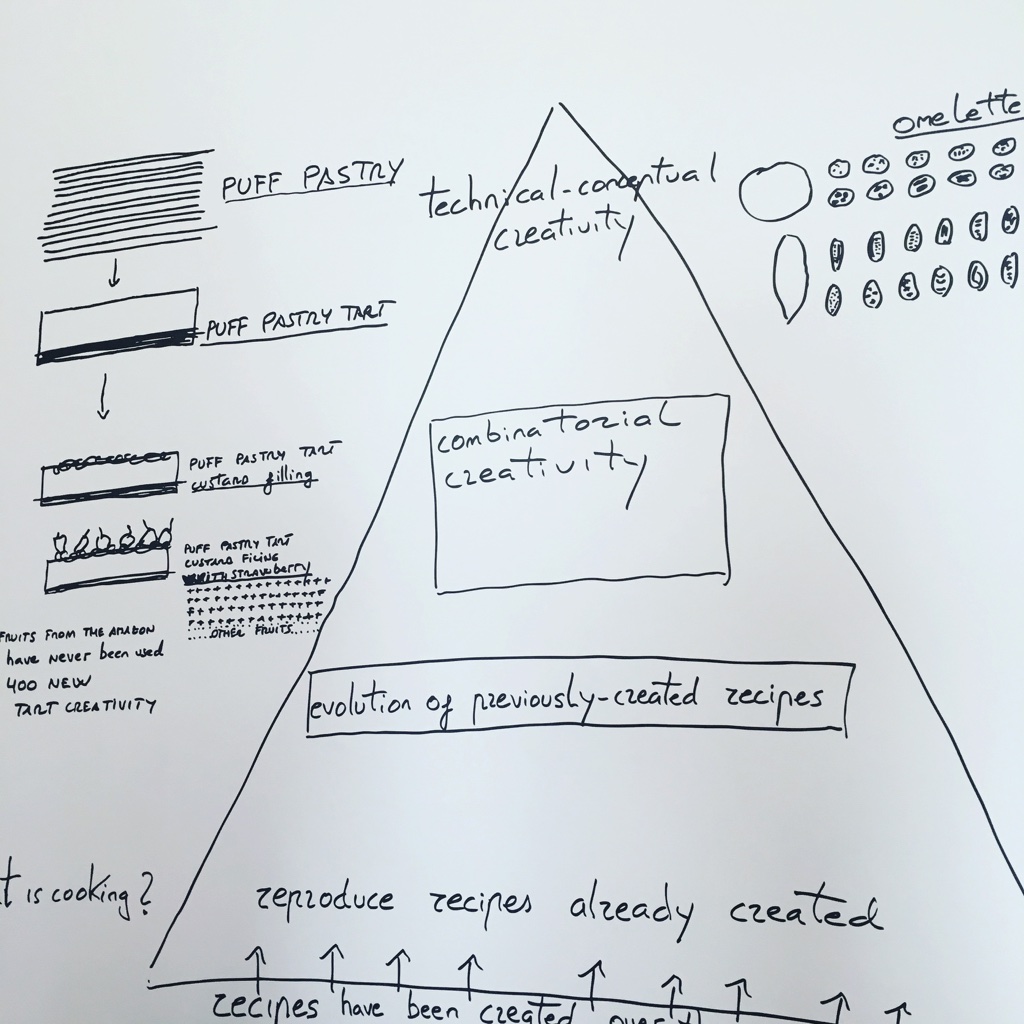 omelette
PUFF PASTRY
technical-conceptual
creativity
PUFF PASTRY TART
combinatorial
creativity
PUFF PASTRY TART
custard filling
PUFF PASTRY TART
CUSTARD FILING
WITH STRAWBERRY
OTHER FRUITS
FRUITS FROM THE AMAZON
have never been used
400 NEW
TART CREATIVITY
evolution of previously-created recipes
is cooking?
reproduce recipes already created
recipes have been created over